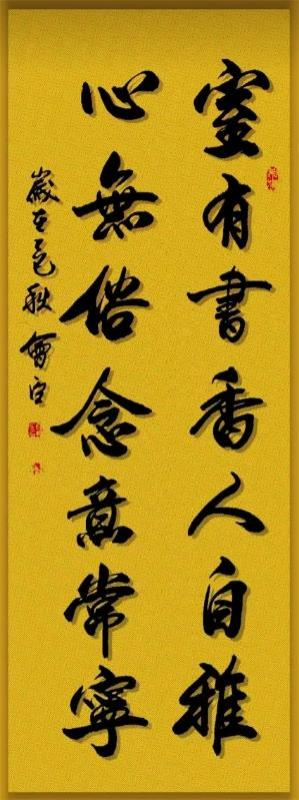 室有書香人自雅
心無俗念意常寧
歲在
秋